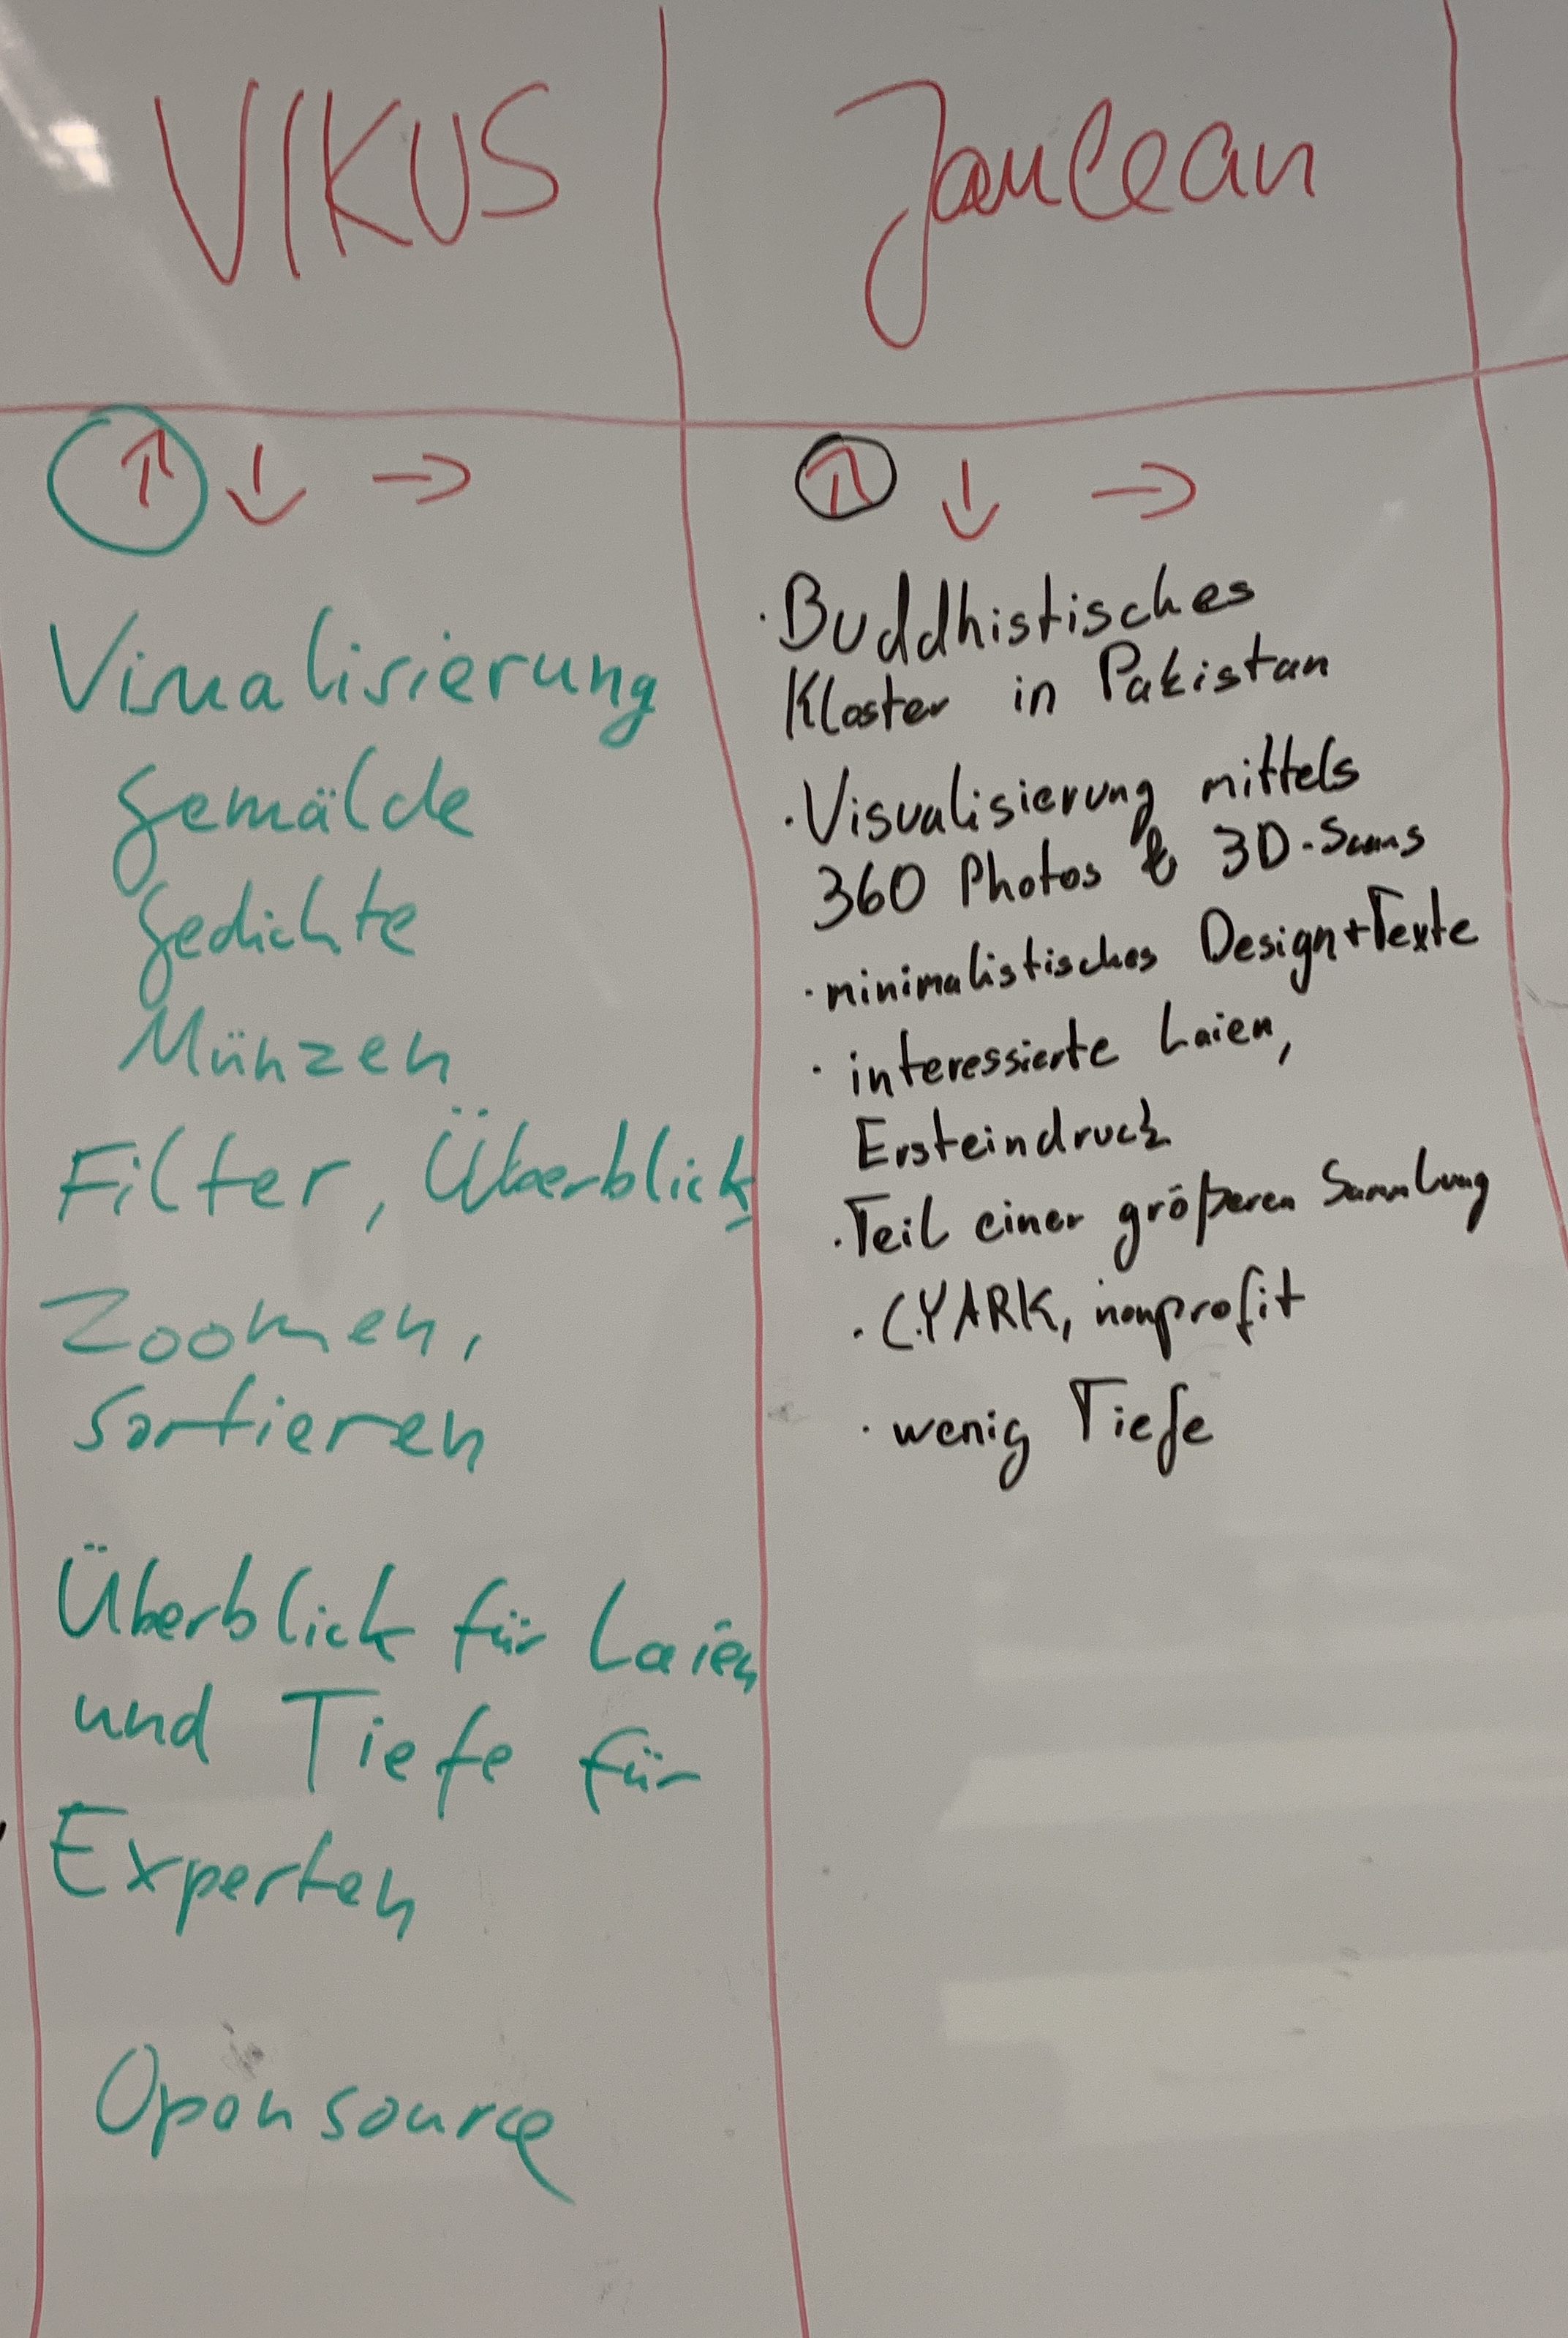 VIKUS
↑ ↓ →
Visualisierung
Gemälde
Gedichte
Münzen
Filter, Überblick
Zoomen,
Sortieren
Überblick für Laien
und Tiefe für
Experten
Opensource
Jaulean
↑ ↓ →
· Buddhistisches
Kloster in Pakistan
· Visualisierung mittels
360 Photos & 3D-Scans
· minimalistisches Design+Texte
· interessierte Laien,
Ersteindruck
· Teil einer größeren Sammlung
· CYARK, nonprofit
· wenig Tiefe